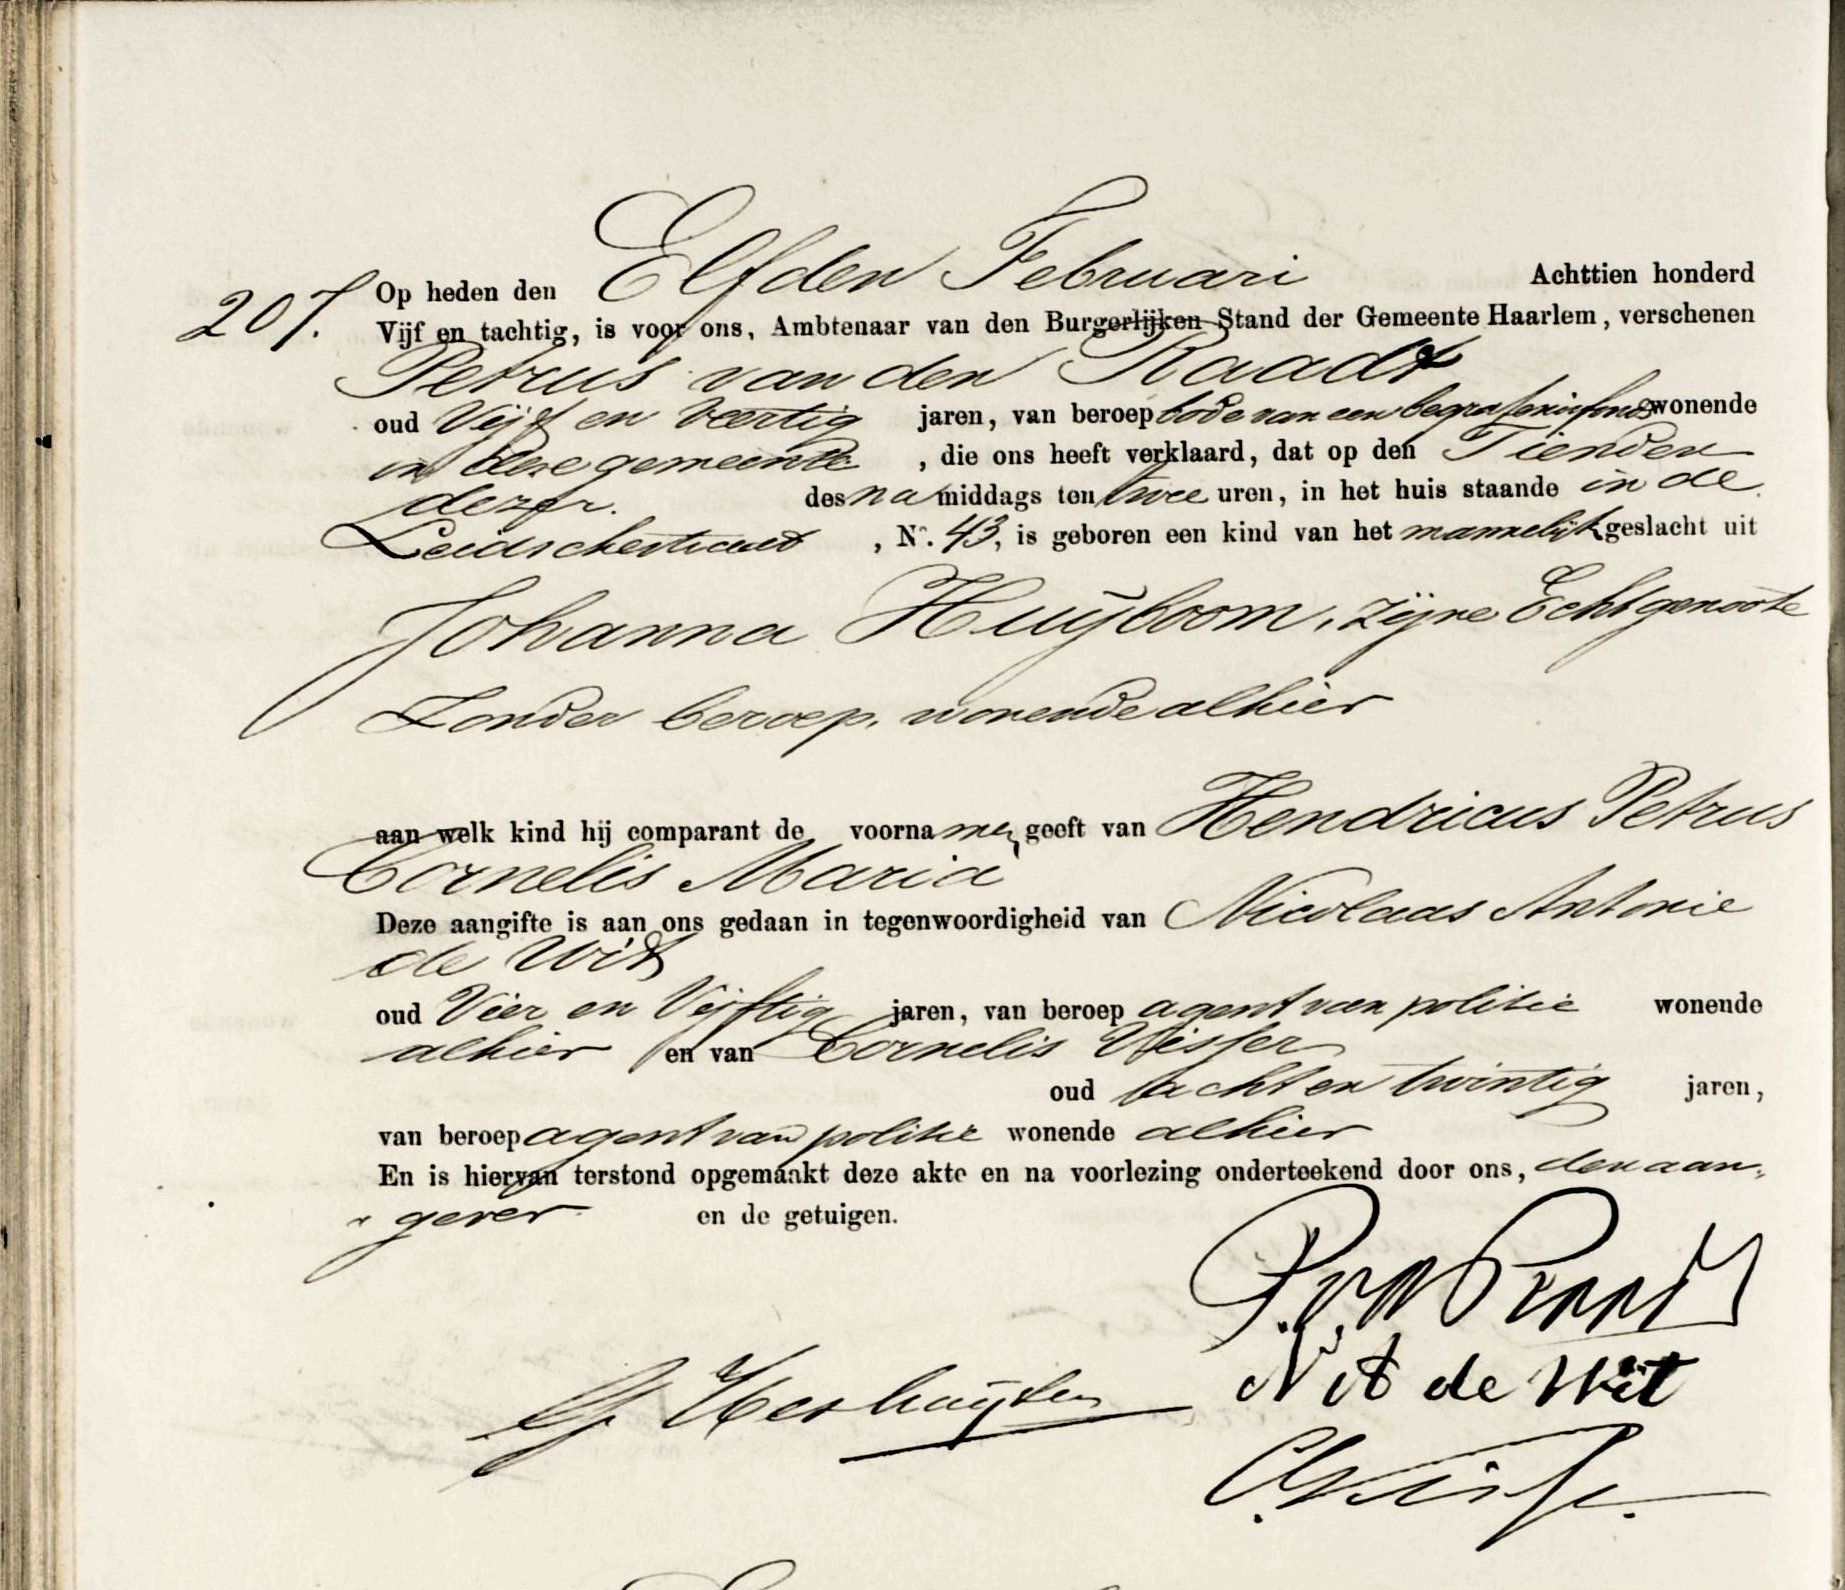 207. Op heden den Elfden Februari Achttien honderd
Vijf en tachtig, is voor ons, Ambtenaar van den Burgerlijken Stand der Gemeente Haarlem, verschenen
Petrus van den Raadt
oud Vijf en Veertig jaren, van beroep bode van een begrafenisfonds wonende
in deze gemeente , die ons heeft verklaard, dat op den Tienden
dezer. des namiddags ten twee uren, in het huis staande in de
Leidschestraat , No. 43, is geboren een kind van het mannelijk geslacht uit
Johanna Huijboom, zijne Echtgenoote
Zonder beroep, wonende alhier
aan welk kind hij comparant de voornamen geeft van Hendricus Petrus
Cornelis Maria
Deze aangifte is aan ons gedaan in tegenwoordigheid van Nicolaas Antonie
de Wit
oud Vier en Vijftig jaren, van beroep agent van politie wonende
alhier en van Cornelis Visser
oud acht en twintig jaren,
van beroep agent van politie wonende alhier
En is hiervan terstond opgemaakt deze akte en na voorlezing onderteekend door ons, den aan-
gever en de getuigen.
P. v. d. Raadt
N A de Wit
C. Visser.